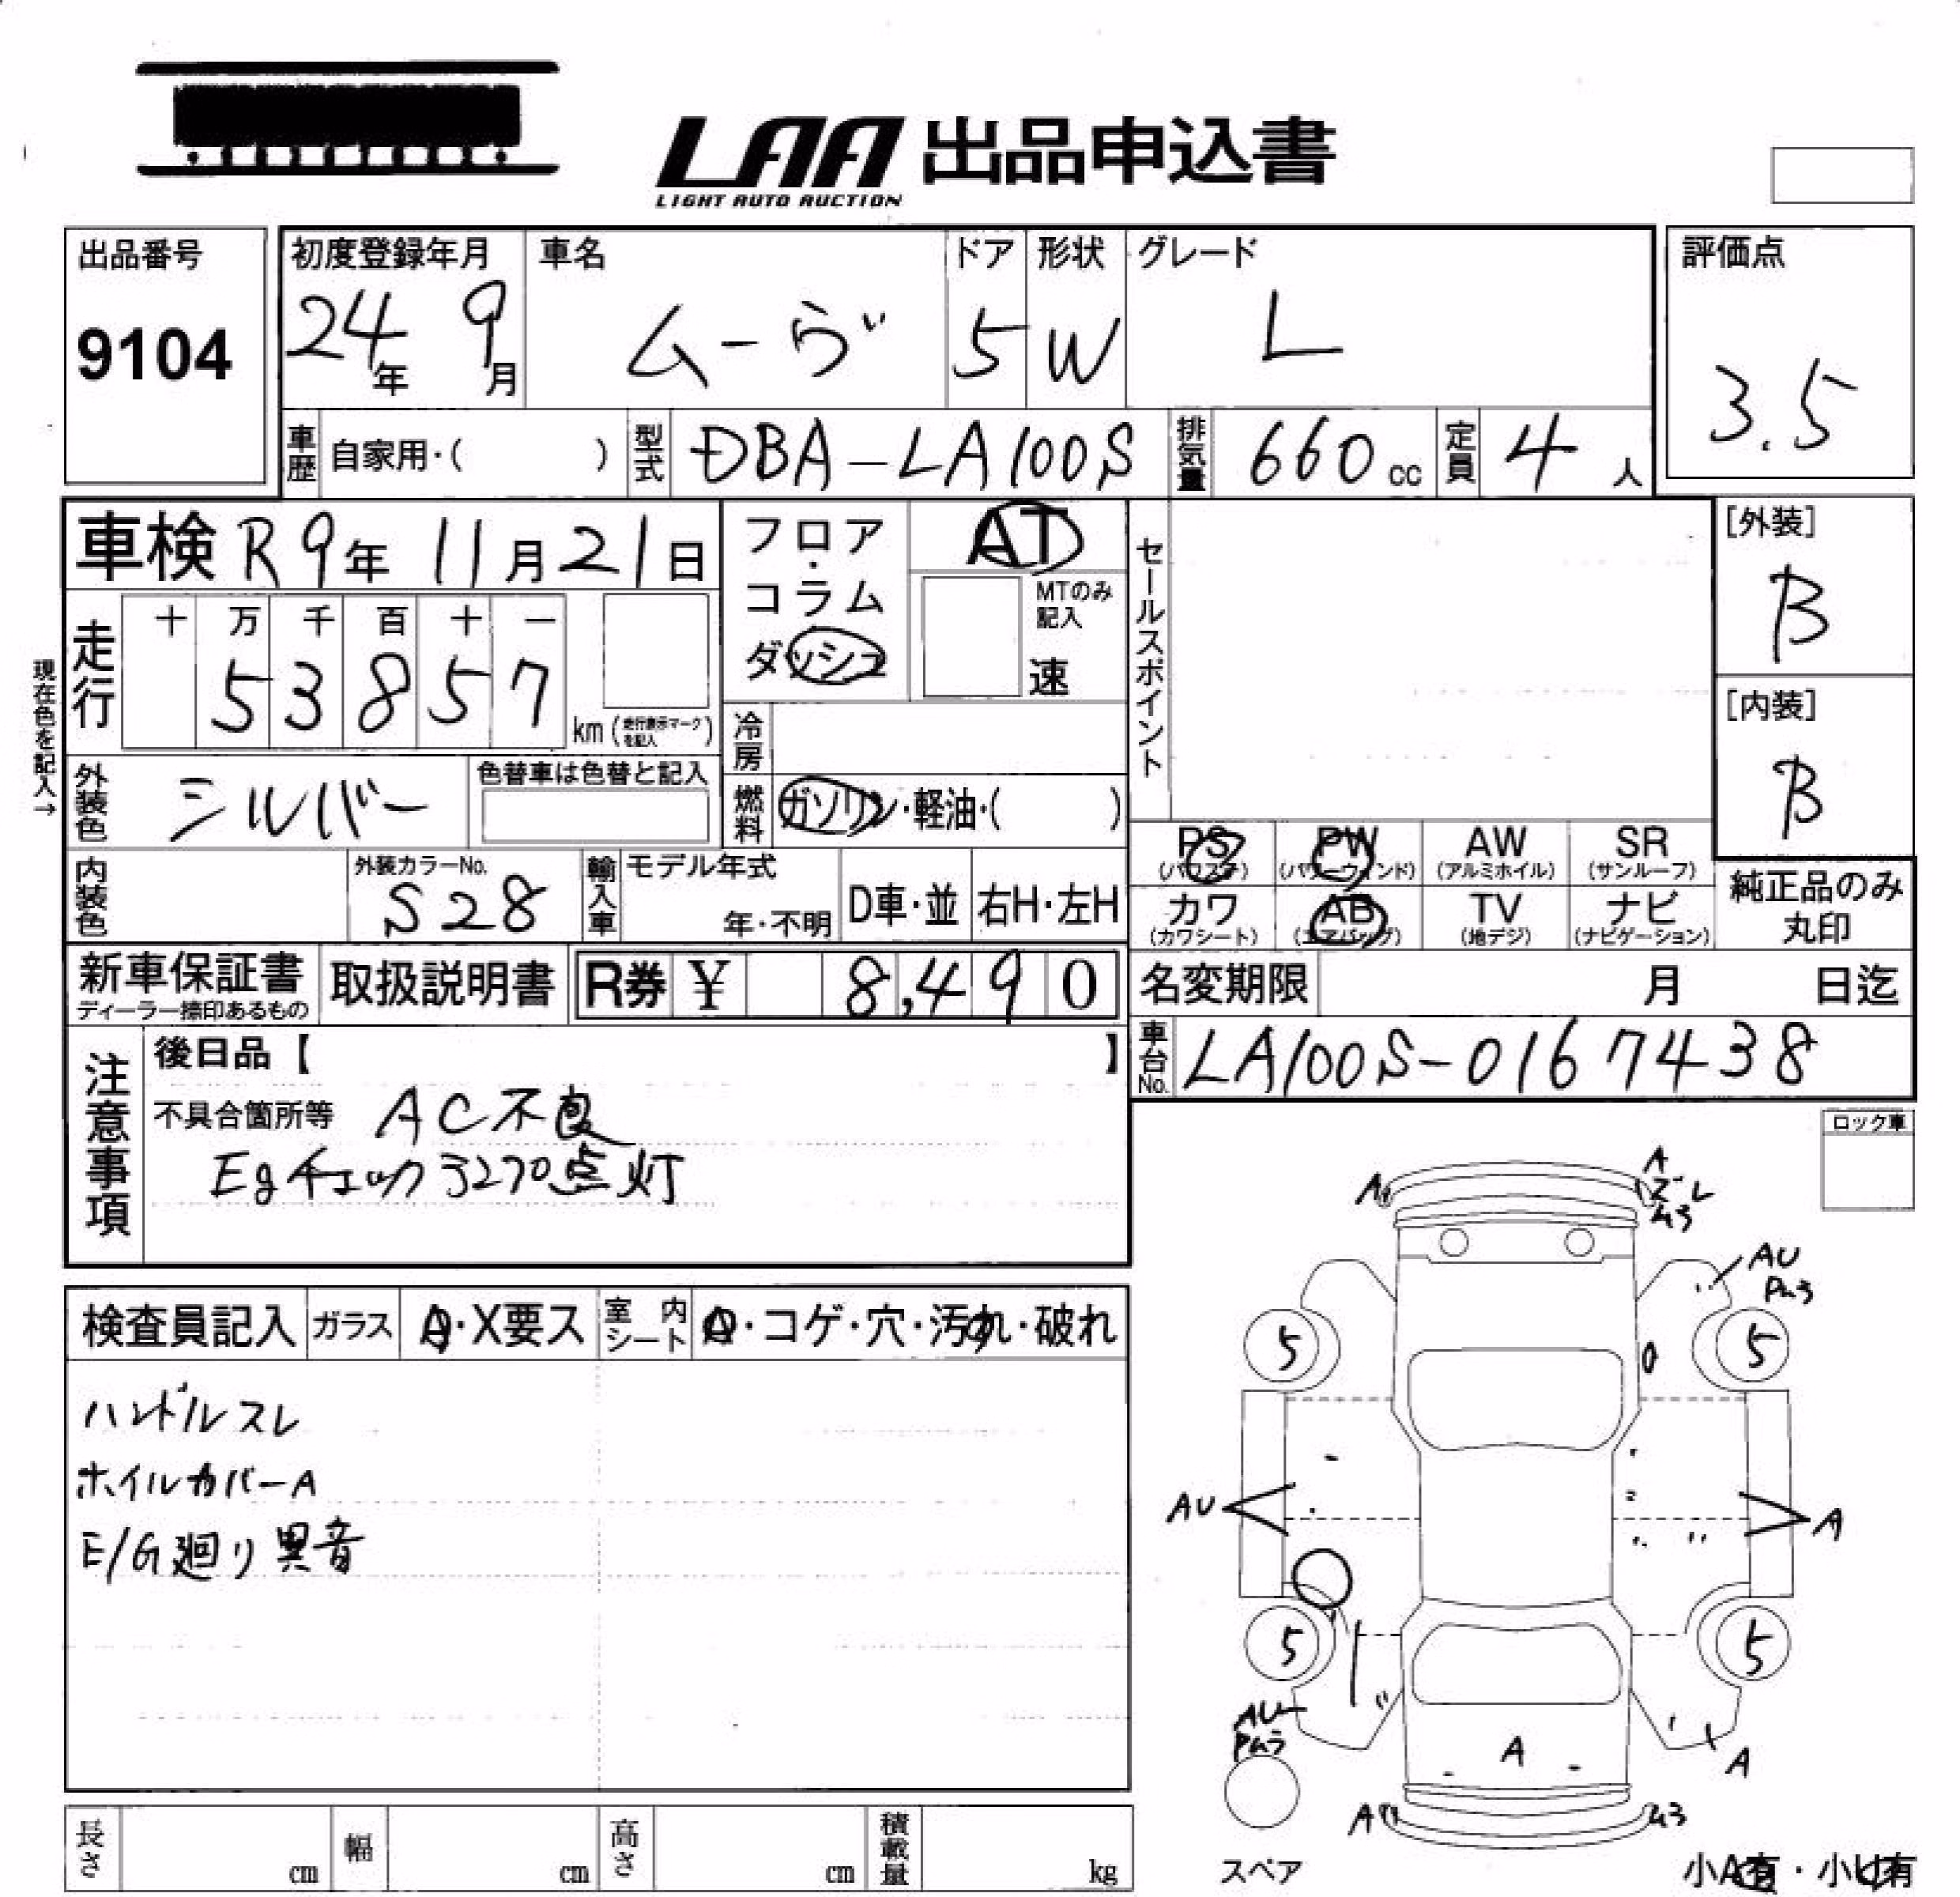 LAA 出品申込書
LIGHT AUTO AUCTION
出品番号
9104
初度登録年月
24年 9月
車名
ムーヴ
ドア
5
形状
W
グレード
L
評価点
3.5
車歴 自家用・( )
型式 DBA-LA100S
排気量 660 cc
定員 4 人
車検 R9年 11月21日
フロア・コラム
ダッシュ
AT
MTのみ記入
速
セールスポイント
[外装]
B
[内装]
B
現在色を記入→
走行
十 万 千 百 十 一
5 3 8 5 7
km (走行表示マークを記入)
冷房
外装色 シルバー
色替車は色替と記入
燃料 ガソリン・軽油・( )
内装色
外装カラーNo.
S28
輸入車
モデル年式
年・不明
D車・並
右H・左H
PS (パワステ)
PW (パワーウィンド)
AW (アルミホイル)
SR (サンルーフ)
カワ (カワシート)
AB (エアバッグ)
TV (地デジ)
ナビ (ナビゲーション)
純正品のみ丸印
新車保証書
ディーラー捺印あるもの
取扱説明書
R券 ¥ 8,490
名変期限 月 日迄
車台No. LA100S-0167438
注意事項
後日品【 】
不具合箇所等 AC不良
Egチェックランプ点灯
ロック車
検査員記入
ガラス A・X要ス
室内シート
・コゲ・穴・汚れ・破れ
ハンドルスレ
ホイルカバーA
E/G廻り異音
A
A
ズレ
ムラ
AU
Pムラ
5
5
AU
A
5
5
AU
Pムラ
A
A
A
ムラ
スペア
小A有・小U有
長さ cm
幅 cm
高さ cm
積載量 kg